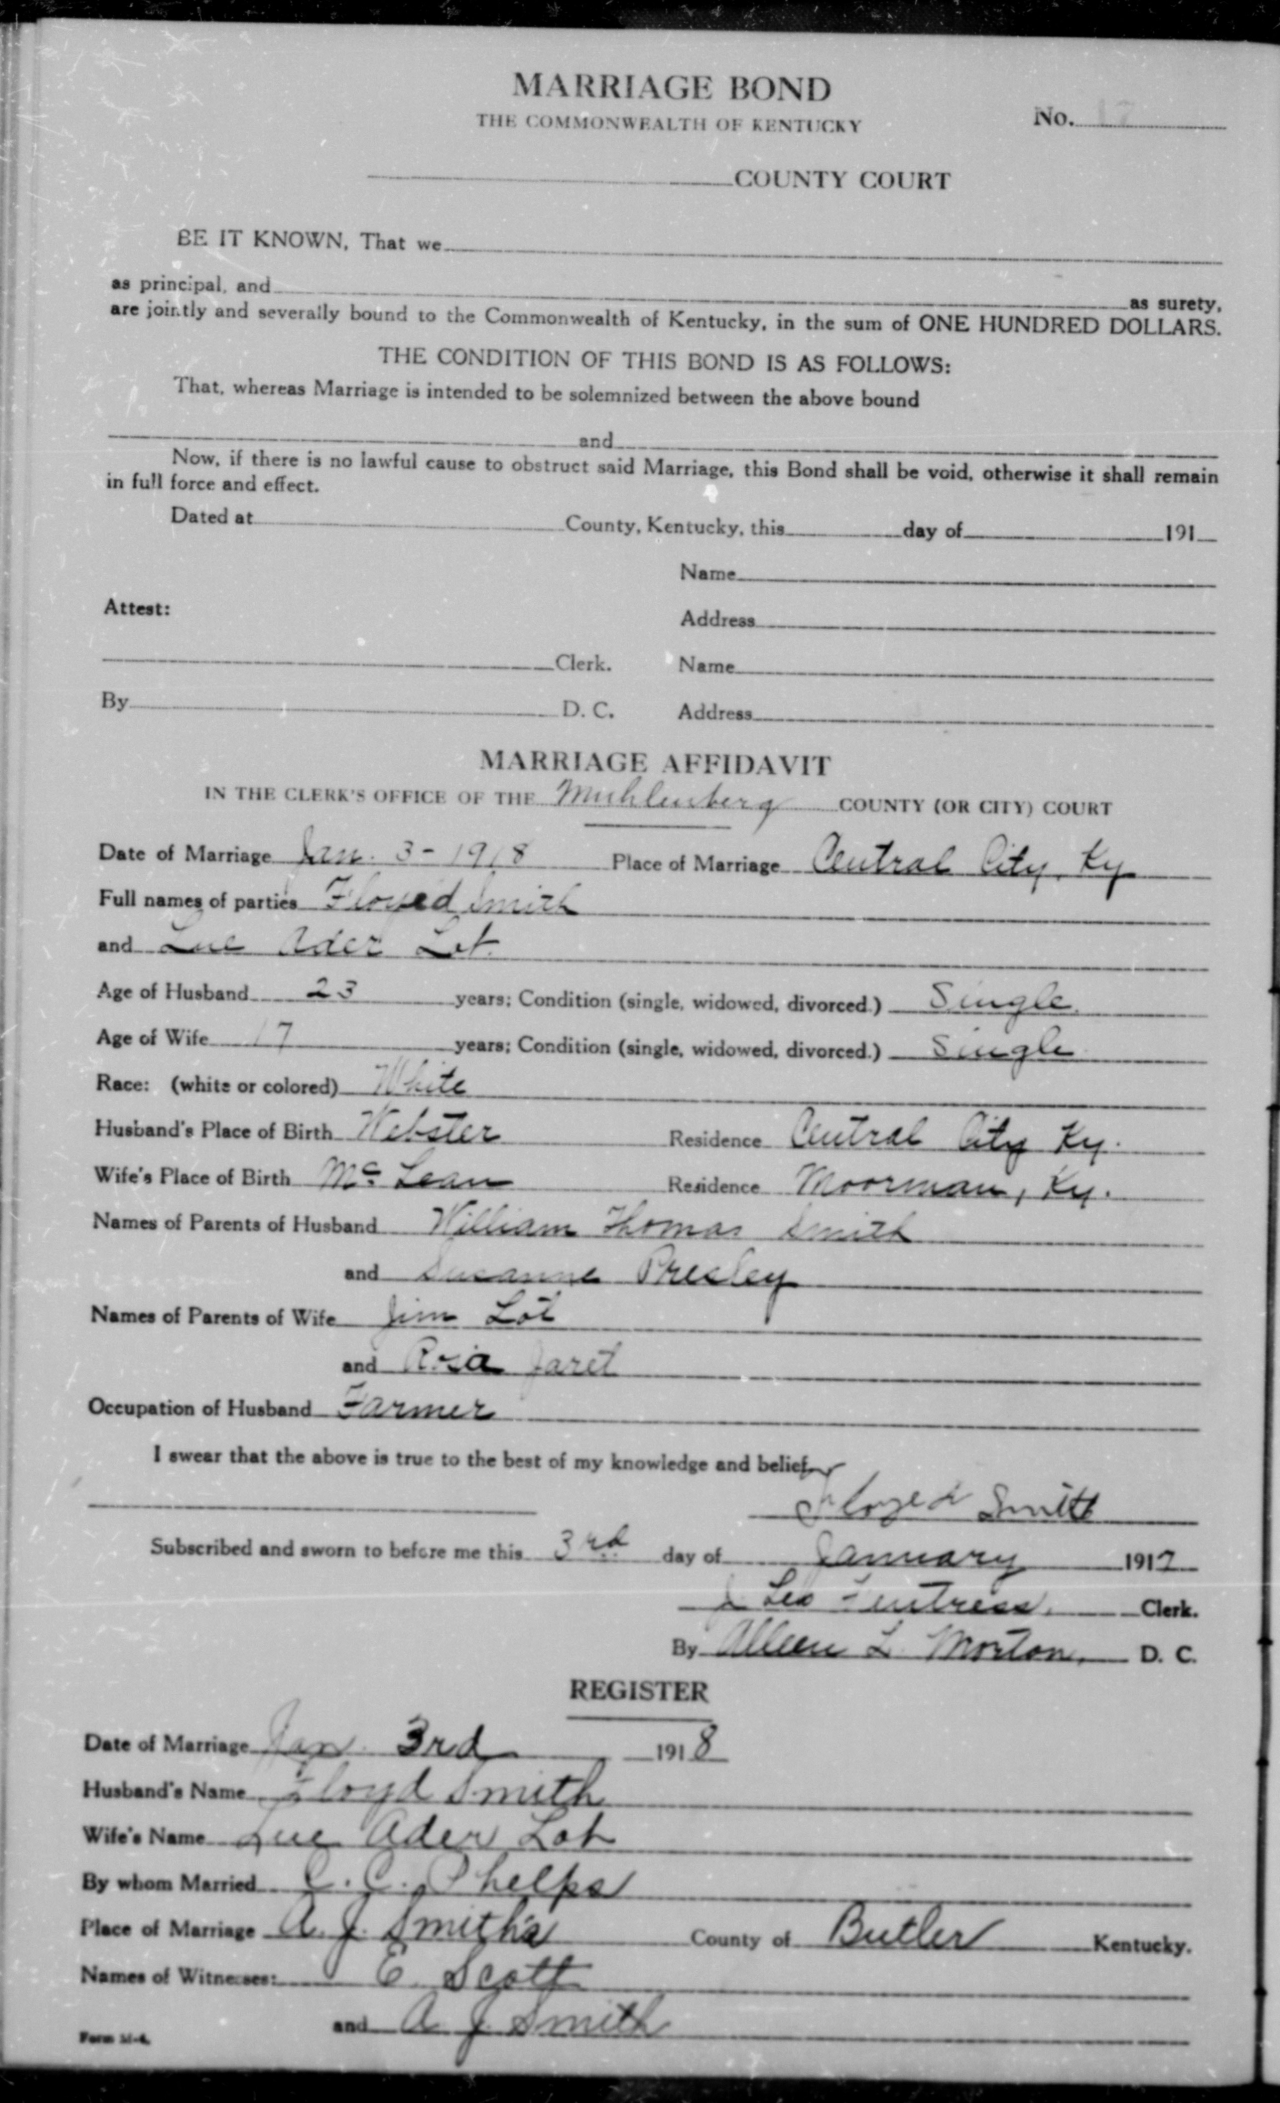 MARRIAGE BOND
THE COMMONWEALTH OF KENTUCKY
No. 17
COUNTY COURT
BE IT KNOWN, That we
as principal, and as surety,
are jointly and severally bound to the Commonwealth of Kentucky, in the sum of ONE HUNDRED DOLLARS.
THE CONDITION OF THIS BOND IS AS FOLLOWS:
That, whereas Marriage is intended to be solemnized between the above bound
and
Now, if there is no lawful cause to obstruct said Marriage, this Bond shall be void, otherwise it shall remain
in full force and effect.
Dated at County, Kentucky, this day of 191
Name
Attest:
Address
Clerk. Name
By D. C. Address
MARRIAGE AFFIDAVIT
IN THE CLERK'S OFFICE OF THE Muhlenberg COUNTY (OR CITY) COURT
Date of Marriage Jan. 3-1918 Place of Marriage Central City, Ky
Full names of parties Floyed Smith
and Lue Ader Lot.
Age of Husband 23 years; Condition (single, widowed, divorced.) Single.
Age of Wife 17 years; Condition (single, widowed, divorced.) Single.
Race: (white or colored) White
Husband's Place of Birth Webster Residence Central City Ky.
Wife's Place of Birth McLean Residence Moorman, Ky.
Names of Parents of Husband William Thomas Smith
and Susanne Presley
Names of Parents of Wife Jim Lot
and Rosa Jaret
Occupation of Husband Farmer
I swear that the above is true to the best of my knowledge and belief.
Floyed Smith
Subscribed and sworn to before me this 3rd day of January 1917
J Leo Fentress, Clerk.
By Alleen L. Morton, D. C.
REGISTER
Date of Marriage Jan. 3rd 1918
Husband's Name Floyd Smith
Wife's Name Lue Ader Lot
By whom Married C. C. Phelps
Place of Marriage A. J. Smith's County of Butler Kentucky.
Names of Witnesses: E. Scott
and A J. Smith
Form M-4.